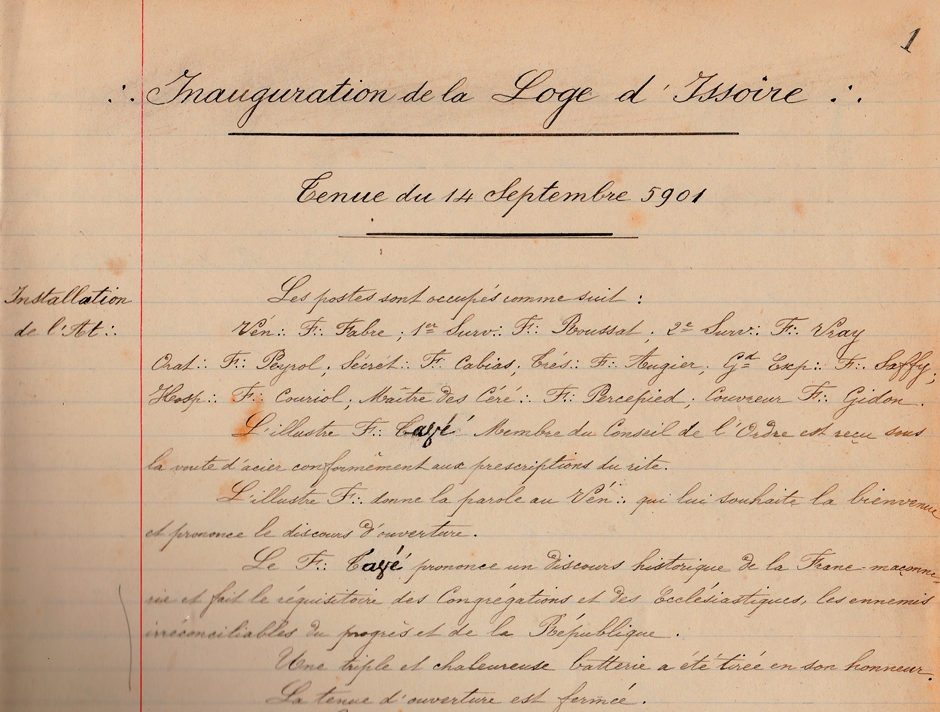 1
∴ Inauguration de la Loge d'Issoire ∴
Tenue du 14 Septembre 5901
Installation
de l'At∴
Les postes sont occupés comme suit :
Vén∴ F∴ Fabre ; 1er Surv∴ F∴ Roussat, 2e Surv∴ F∴ Vray
Orat∴ F∴ Peyrol, Secrét∴ F∴ Cabias, Trés∴ F∴ Augier, Gd Exp∴ F∴ Saffy;
Hosp∴ F∴ Couriol, Maître des Céré∴ F∴ Percepied ; Couvreur F∴ Gidon.
L'illustre F∴ Membre du Conseil de l'Ordre est reçu sous
la voute d'acier conformément aux prescriptions du rite.
L'illustre F∴ donne la parole au Vén∴ qui lui souhaite la bienvenue
et prononce le discours d'ouverture.
Le F∴ prononce un discours historique de la Franc-maçonne-
rie et fait le réquisitoire des Congrégations et des Ecclésiastiques, les ennemis
irréconciliables du progrès et de la République.
Une triple et chaleureuse batterie a été tirée en son honneur.
La tenue d'ouverture est fermée.